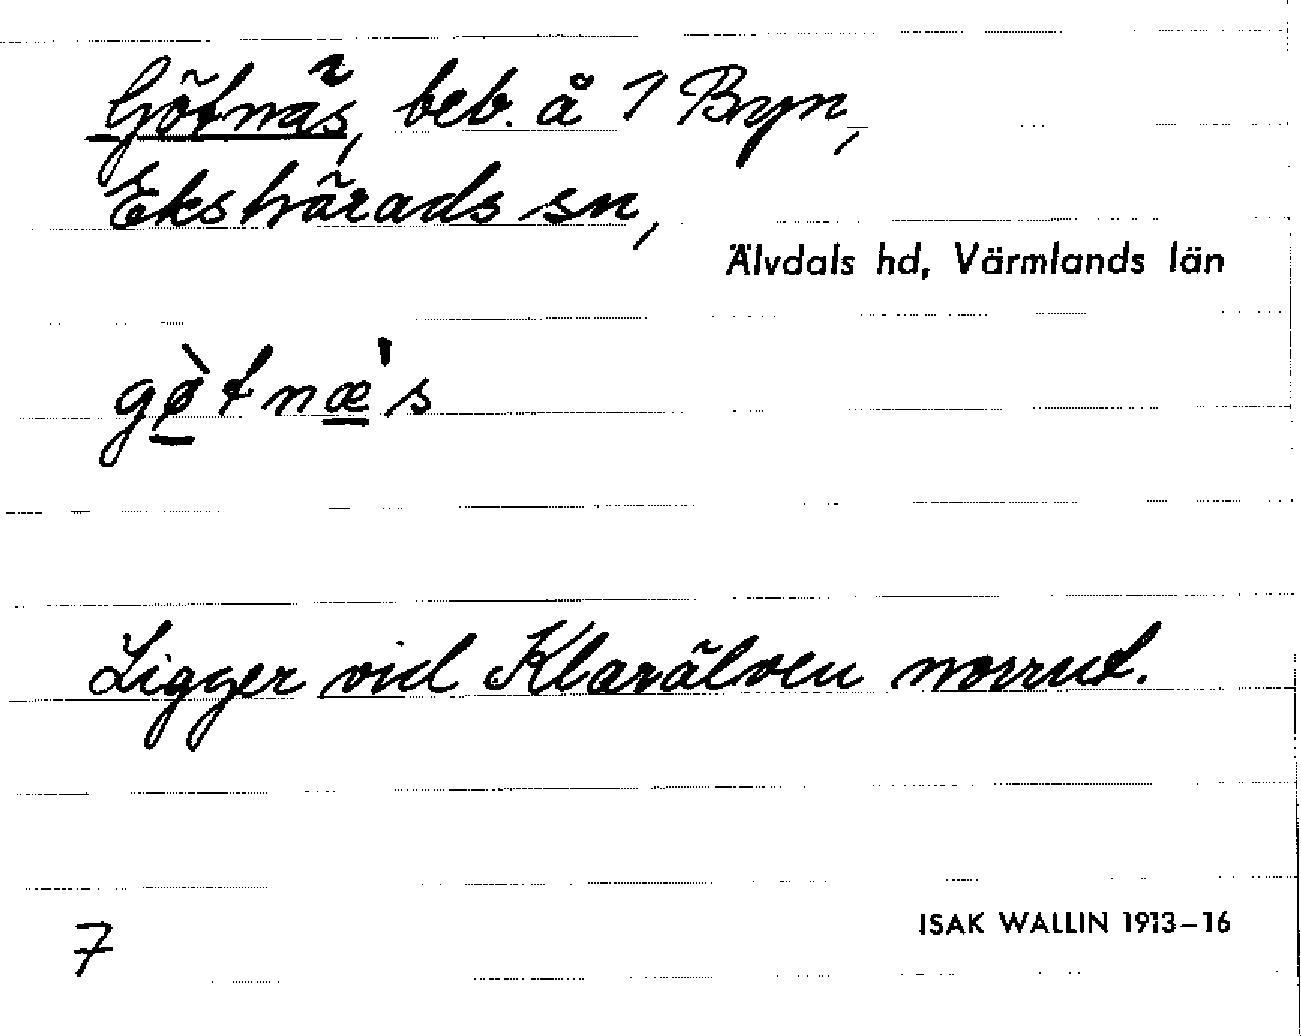 Götnäs, beb. å 1 Byn,
Ekshärads sn,
Älvdals hd, Värmlands län
gø̱̀tnæ̱'s
Ligger vid Klarälven norrut.
7
ISAK WALLIN 1913–16